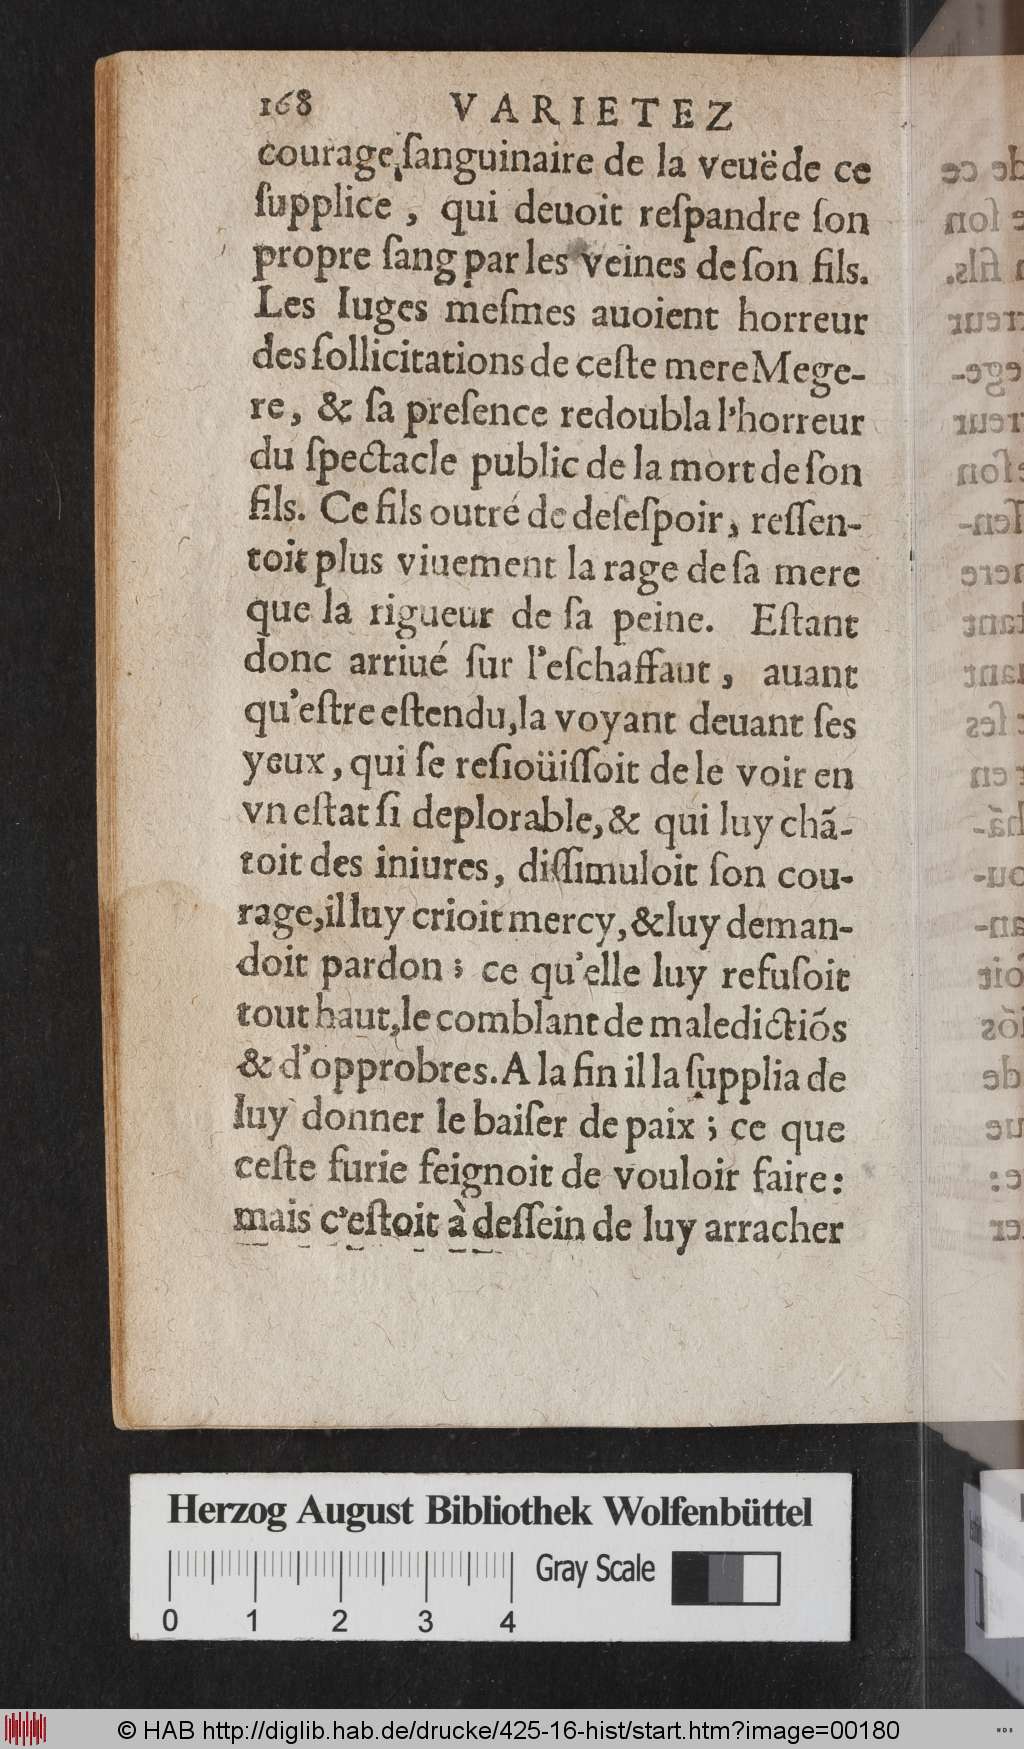 168 VARIETEZ
courage ſanguinaire de la veuë de ce
ſupplice, qui deuoit reſpandre ſon
propre ſang par les veines de ſon fils.
Les Iuges meſmes auoient horreur
des ſollicitations de ceſte mere Mege-
re, & ſa preſence redoubla l'horreur
du ſpectacle public de la mort de ſon
fils. Ce fils outré de deſeſpoir, reſſen-
toit plus viuement la rage de ſa mere
que la rigueur de ſa peine. Eſtant
donc arriué ſur l'eſchaffaut, auant
qu'eſtre eſtendu, la voyant deuant ſes
yeux, qui ſe reſioüiſſoit de le voir en
vn eſtat ſi deplorable, & qui luy chã-
toit des iniures, diſſimuloit ſon cou-
rage, il luy crioit mercy, & luy deman-
doit pardon; ce qu'elle luy refuſoit
tout haut, le comblant de maledictiõs
& d'opprobres. A la fin il la ſupplia de
luy donner le baiſer de paix; ce que
ceſte furie feignoit de vouloir faire:
mais c'eſtoit à deſſein de luy arracher
Herzog August Bibliothek Wolfenbüttel
Gray Scale
0 1 2 3 4
© HAB http://diglib.hab.de/drucke/425-16-hist/start.htm?image=00180